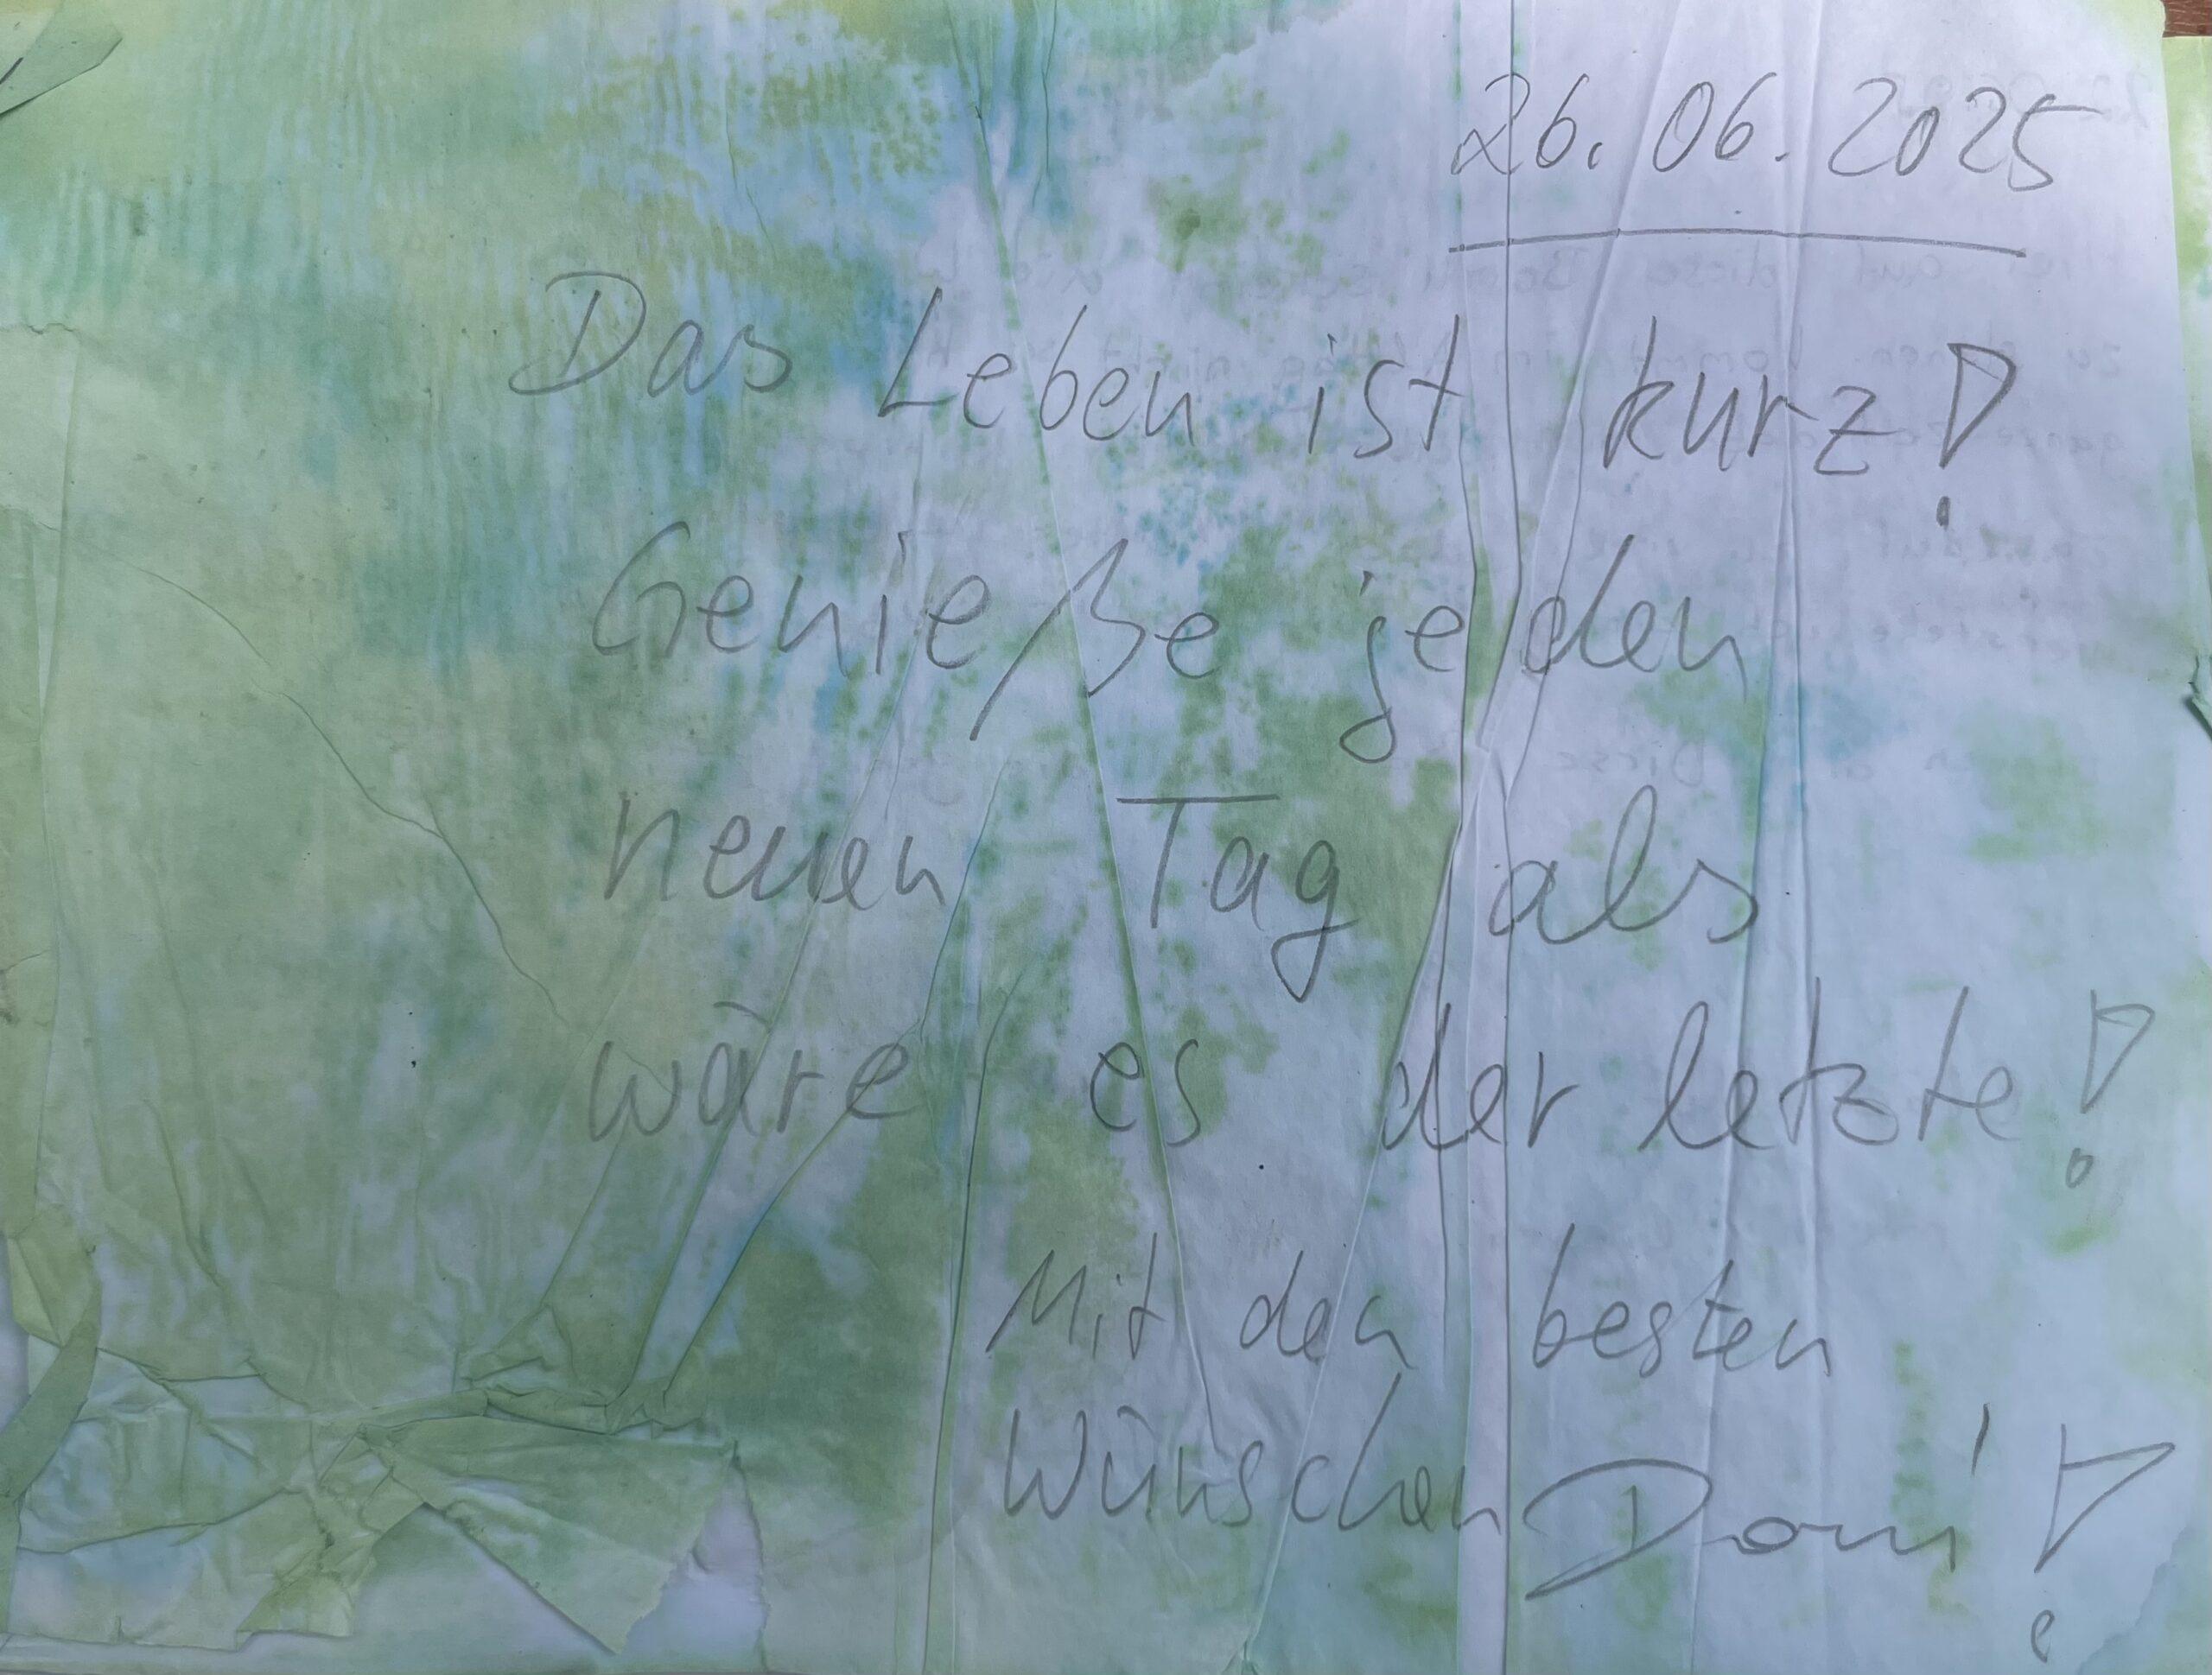 26.06.2025
Das Leben ist kurz!
Genieße jeden
neuen Tag als
wäre es der letzte!
Mit den besten
Wünschen Domi!